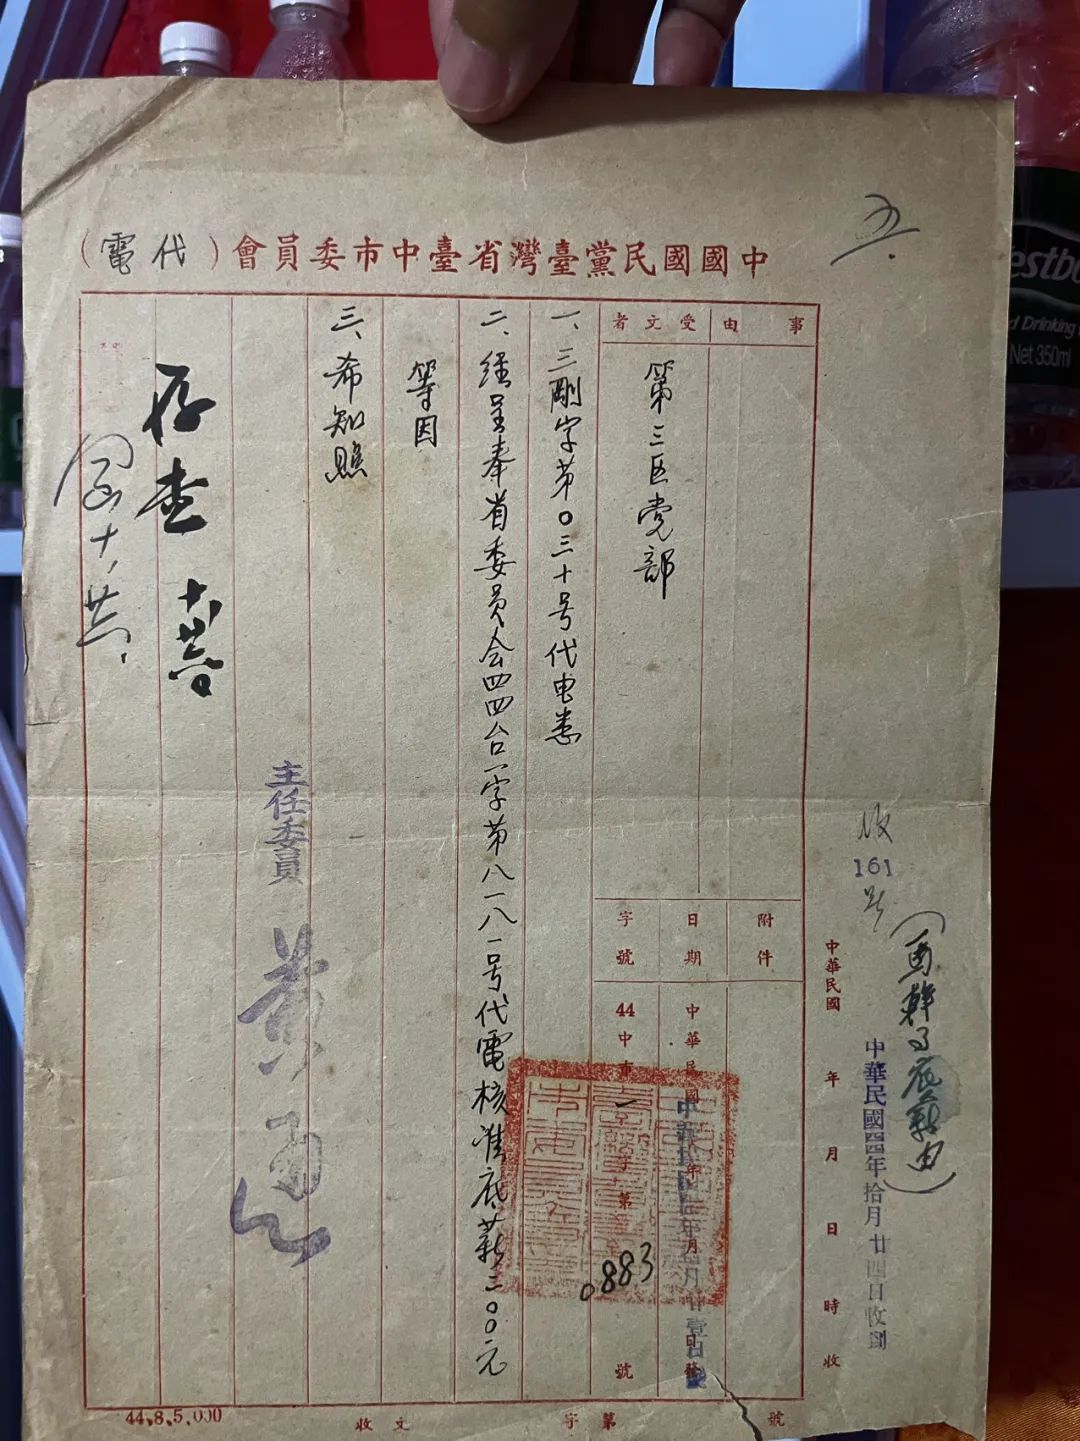 中國國民黨臺灣省臺中市委員會（代電）
事由
受文者
第三区党部
附件
日期
字號
中華民國 年 月 日發
44中市一字第0883號
一、三剛字第0三十号代电悉
二、经呈奉省委员会四四台一字第八一八一号代電核准底薪二00元
等因
三、希知照
主任委員
存查
十、廿六
收
161
号
中華民國 年 月 日 時 收
中華民國四四年拾月廿四日收到
收文 字第 號
44,8,5,000
estb
d Drinking
Net 350ml